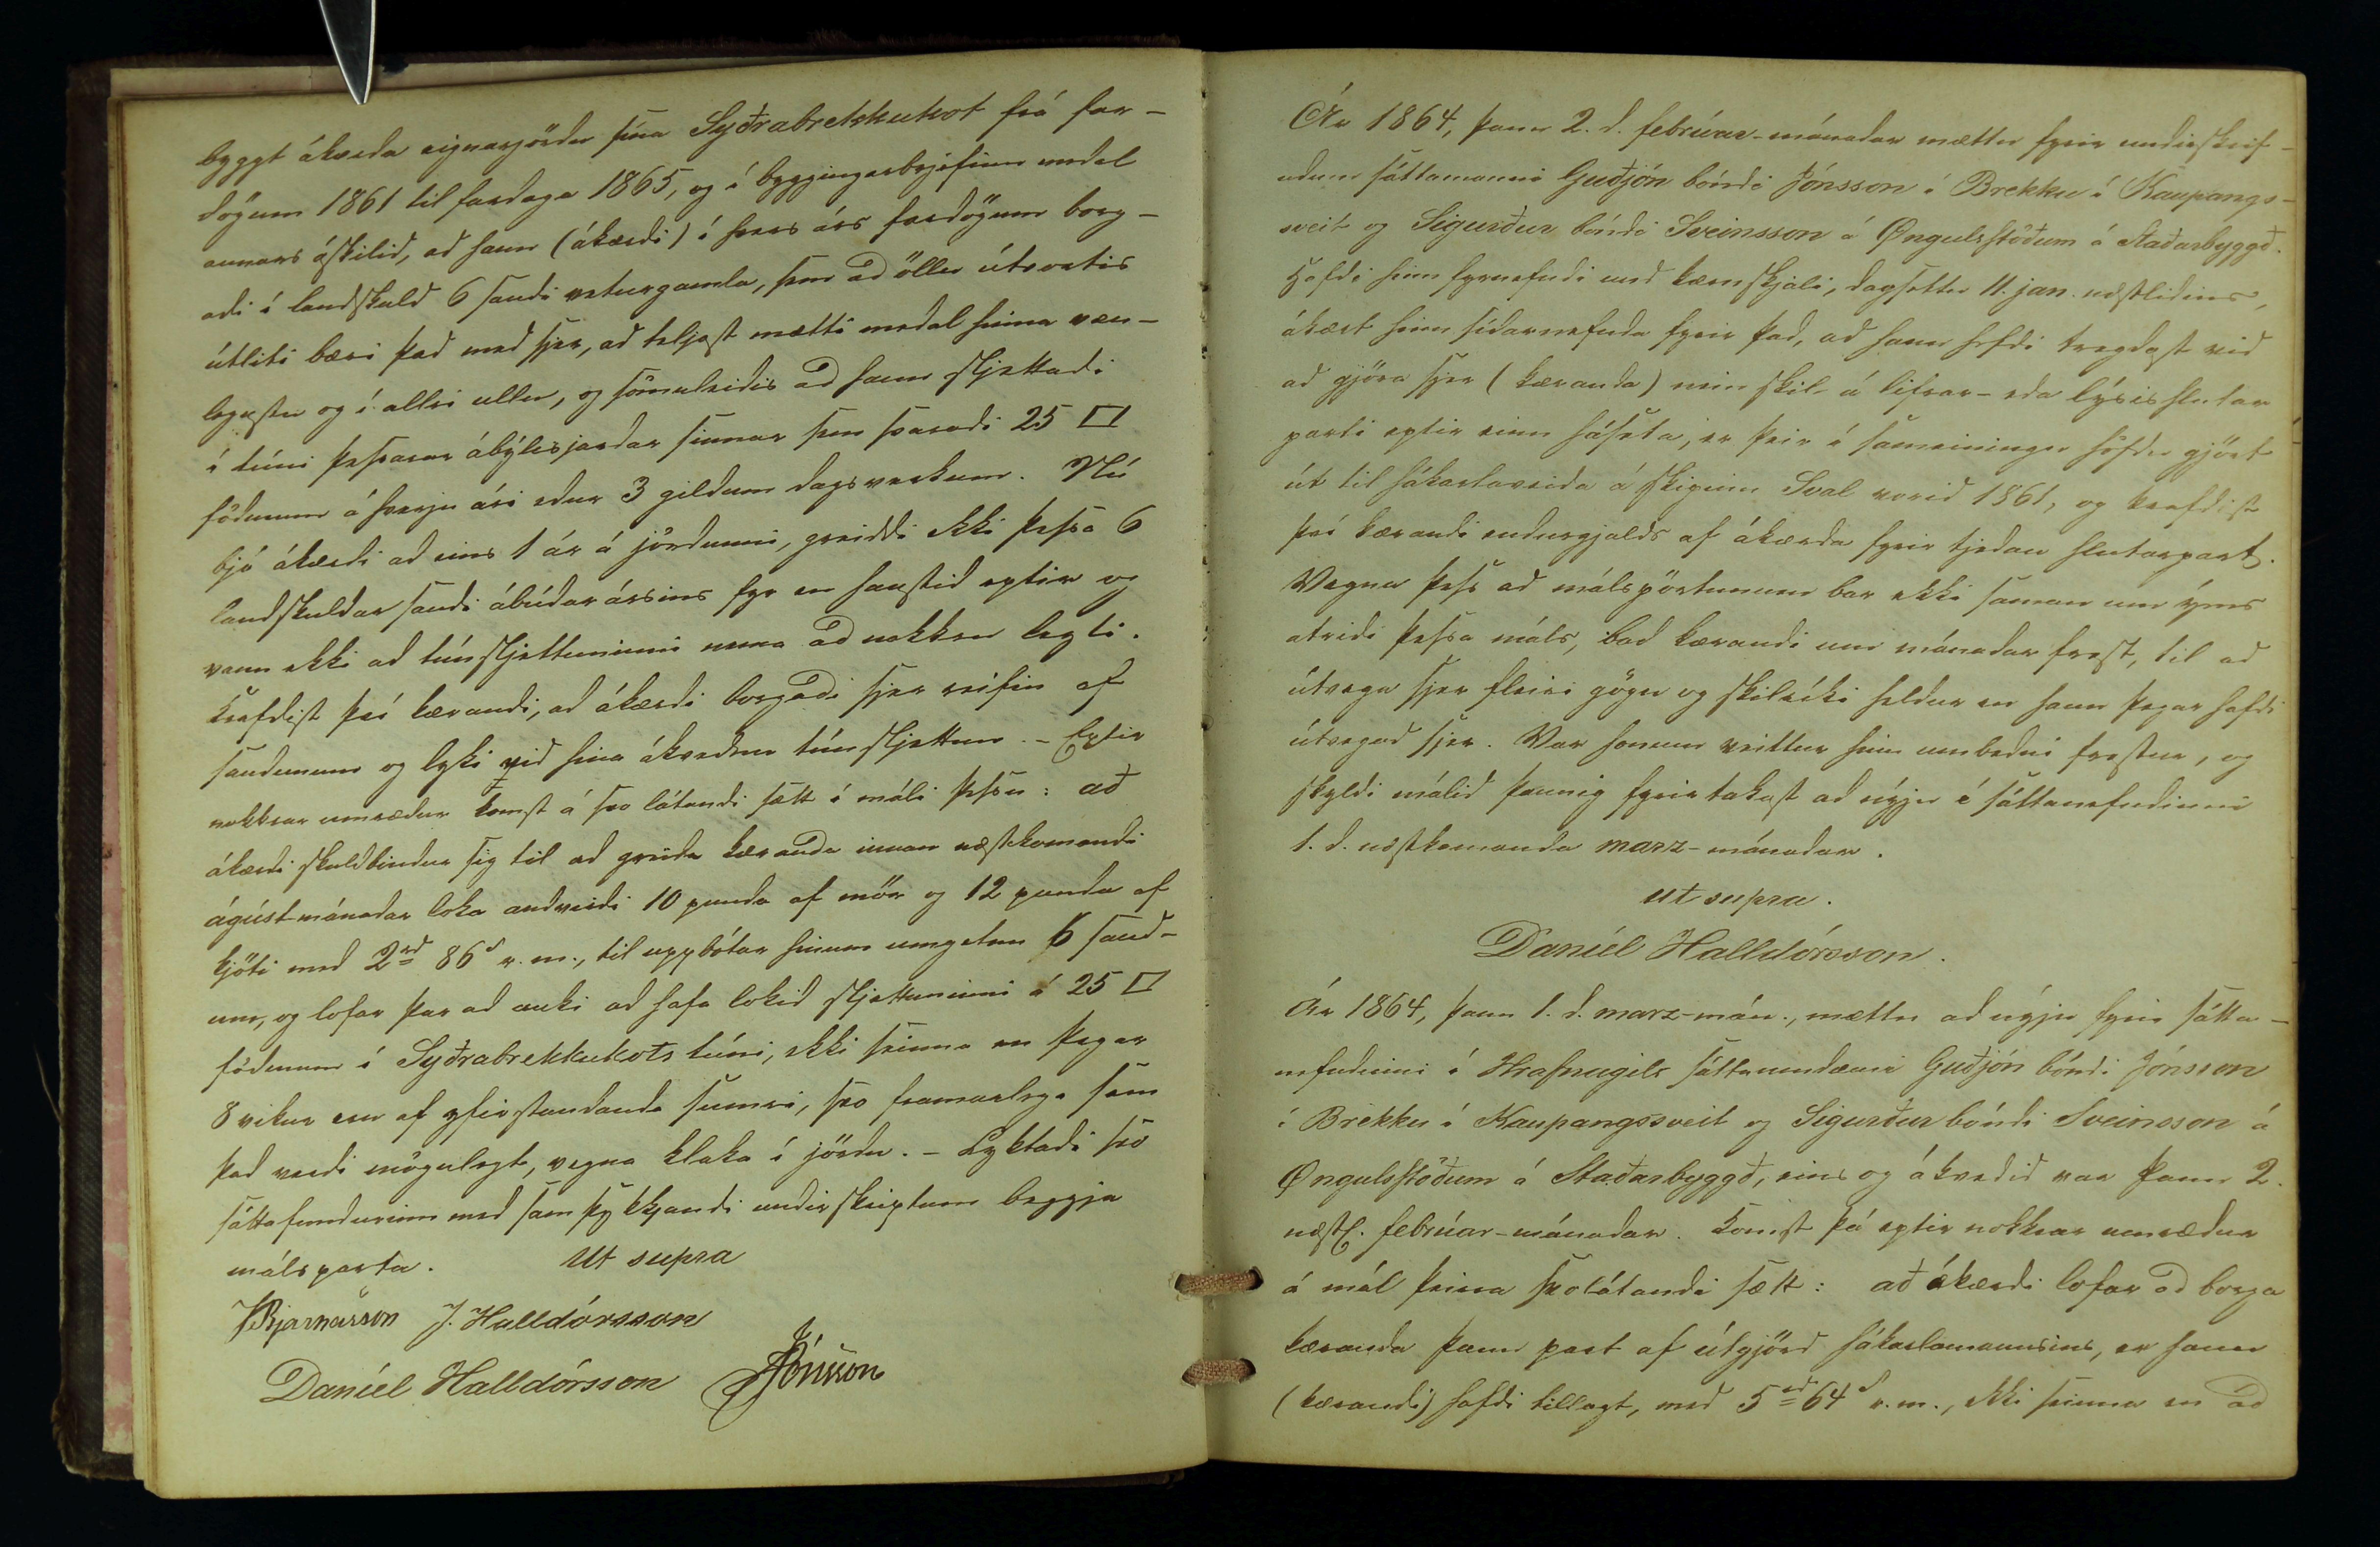 byggt ákærda eignarjörðu sína Syðrabrekkukot frá far-
dögum 1861 til fardaga 1865, og í byggingarbrjefinu medal
annars áskilid, ad hann (ákærdi) í hvers árs fardögum borg-
adi í landskuld 6 saudi veturgamla, sem ad öllu útvortis
útliti bæri það med sjer, ad teljast mætti medal hinna væn-
legustu og í allri ullu, og sömuleidis ad hann sljettadi
í túni þessarar ábýlisjardar sinnar sem svaradi 25 □
födmum á hverju ári edur 3 gildum dagsverkum. Nú
bjó ákærdi ad eins 1 ár á jördunni, greiddi ekki þessa 6
landskuldar saudi ábúdarársins fyr en haustid eptir og
vann ekki ad túnsljettuninni nema ad nokkru leyti.
Krafdist því kærandi, ad ákærdi borgadi sjer rífin af
saudunum og lyki vid hina ákvednu túnsljettun. - Eptir
nokkrar umrædur komst á svo látandi sætt í máli þessu: að
ákærdi skuldbindur sig til ad greida kæranda innan næstkomandi
ágúst-mánadar loka andvirdi 10 punda af mör og 12 punda af
kjöti med 2rd 86s r.m., til uppbótar hinum umgetnu 6 saud-
um, og lofar þar ad auki ad hafa lokid sljettuninni á 25 □
födmum í Syðrabrekkukots túni, ekki seinna en þegar
8 vikur eru af yfirstandandi sumri, svo framarlega sem
það verdi mögulegt, vegna klaka í jördu. - Lyktadi svo
sáttafundurinn med samþykkjandi undirskriptum beggja
málsparta. Ut supra
Bjarnarson J. Halldórsson
Daníel Halldórsson Jónsson
Ár 1864, þann 2. d. febrúar-mánadar mættu fyrir undirskrif-
udum sáttamanni Guðjón bóndi Jónsson í Brekku í Kaupangs-
sveit og Sigurður bóndi Sveinsson á Øngulsstöðum á Staðarbyggð.
Hafdi hinn fyrnefndi med kæruskjali, dagsettu 11. jan. næstlidins,
ákært hinn sídarnefnda fyrir það, ad hann hefdi tregdast vid
ad gjöra sjer (kæranda) nein skil á lifrar- eda lýsishlutar
parti eptir einn háseta, er þeir í sameiningu höfdu gjört
út til hákarlaveida á skipinu Sval vorid 1861, og krafdist
því kærandi endurgjalds af ákærda fyrir tjedan hlutarpart.
Vegna þess ad málspörtunum bar ekki saman um ýms
atridi þessa máls, bad kærandi um mánadar frest, til ad
útvega sjer fleiri gögn og skilríki heldur en hann þegar hafdi
útvegad sjer. Var honum veittur hinn umbedni frestur, og
skyldi málid þannig fyrirtakast ad nýju í sáttanefndinni
1. d. næstkomanda marz-mánadar.
ut supra.
Daníel Halldórsson.
Ár 1864, þann 1. d. marz-mán., mættu ad nýju fyrir sátta-
nefndinni í Hrafnagils sáttaumdæmi Guðjón bóndi Jónsson
í Brekku í Kaupangssveit og Sigurður bóndi Sveinsson á
Øngulsstöðum á Staðarbyggð, eins og ákvedid var þann 2.
næstl. febrúar-mánadar. Komst þá eptir nokkrar umrædur
á mál þeirra svolátandi sætt: að ákærdi lofar ad borga
kæranda þann part af útgjörd hákarlamannsins, er hann
(kærandi) hafdi tillagt, med 5rd 64s r.m., ekki seinna en ad